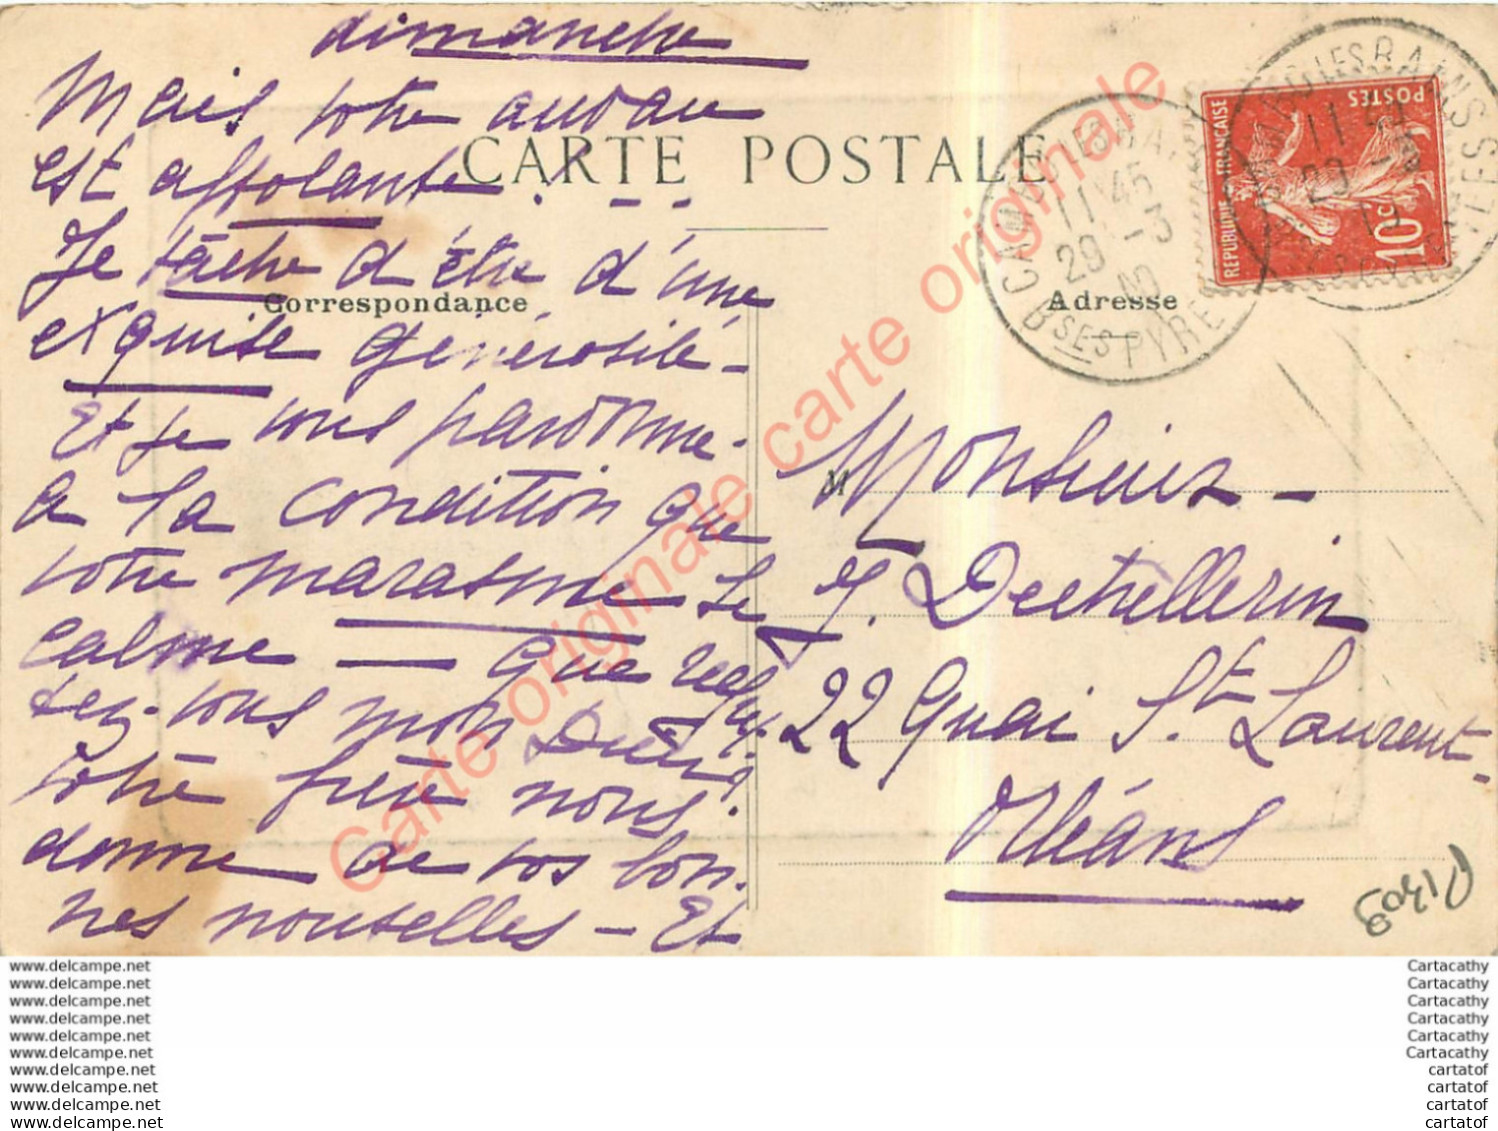 dimanche
Mais votre audau
est affolante! - -
Je tâche d'être d'une
exquise générosité -
Et je vous pardonne -
a la condition que
votre marasme se
calme — Que
tez-vous mon
Votre frère nous
donne de vos bon.
nes nouvelles - Et
CARTE POSTALE
Correspondance
Adresse
M
Monsieur -
J. Dechellerin
22 Quai St Laurent -
Orléans
CAMBO LES BAINS
11 45
29 - 3
BSES PYRENEES
REPUBLIQUE FRANÇAISE
POSTES
10c
Carte originale carte originale carte originale
www.delcampe.net
www.delcampe.net
www.delcampe.net
www.delcampe.net
www.delcampe.net
www.delcampe.net
www.delcampe.net
www.delcampe.net
www.delcampe.net
www.delcampe.net
Cartacathy
Cartacathy
Cartacathy
Cartacathy
Cartacathy
Cartacathy
cartatof
cartatof
cartatof
cartatof